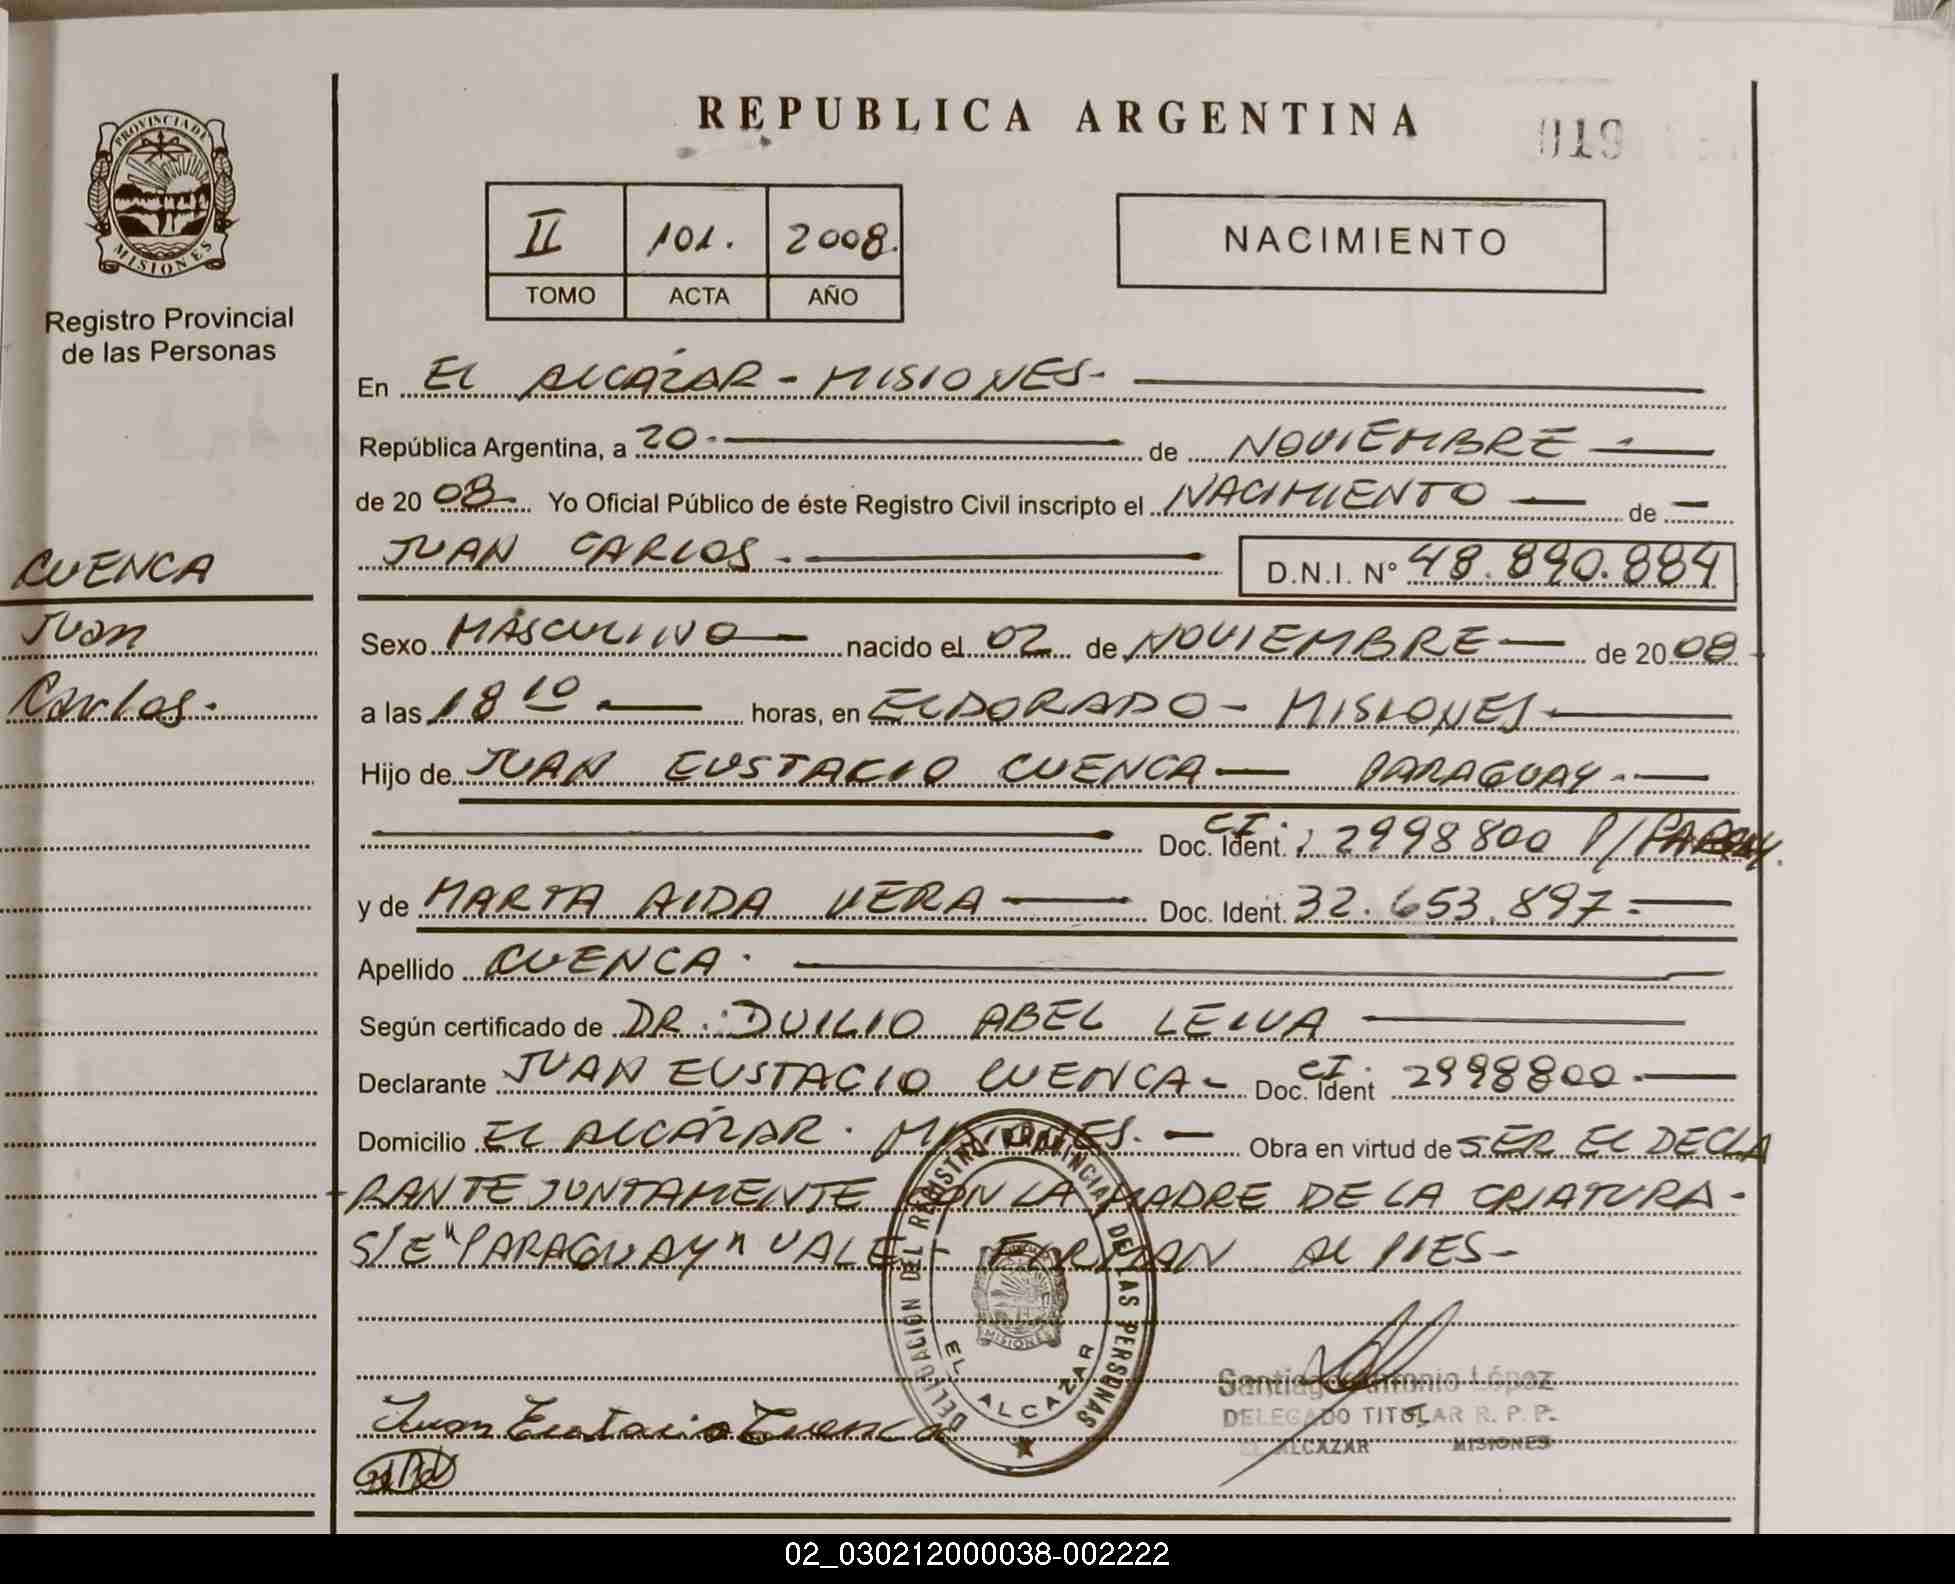 REPUBLICA ARGENTINA
019
PROVINCIA DE
MISIONES
Registro Provincial
de las Personas
II 101. 2008.
TOMO ACTA AÑO
NACIMIENTO
En EL ALCÁZAR - MISIONES-
República Argentina, a 20- de NOVIEMBRE -
de 20 08 Yo Oficial Público de éste Registro Civil inscripto el NACIMIENTO — de —
JUAN CARLOS. D.N.I. N° 48.890.884
CUENCA
Juan
Carlos.
Sexo MASCULINO — nacido el 02 de NOVIEMBRE — de 20 08
a las 18 10 — horas, en ELDORADO - MISIONES -
Hijo de JUAN EUSTACIO CUENCA — PARAGUAY. —
CI.
Doc. Ident. 2998800 P/PARAGUAY.
y de MARTA AIDA VERA — Doc. Ident. 32.653.897=
Apellido CUENCA.
Según certificado de DR. DUILIO ABEL LEIVA —
Declarante JUAN EUSTACIO CUENCA - CI. Doc. Ident 2998800. —
Domicilio EL ALCÁZAR. MISIONES. — Obra en virtud de SER EL DECLA
RANTE JUNTAMENTE CON LA MADRE DE LA CRIATURA -
S/E "PARAGUAY" VALE - FIRMAN AL PIES -
DELEGACION DEL REGISTRO PROVINCIAL DE LAS PERSONAS
MISIONES
EL ALCAZAR
Juan Eustacio Cuenca
Santiago Antonio López
DELEGADO TITULAR R. P. P.
EL ALCAZAR MISIONES
02_030212000038-002222